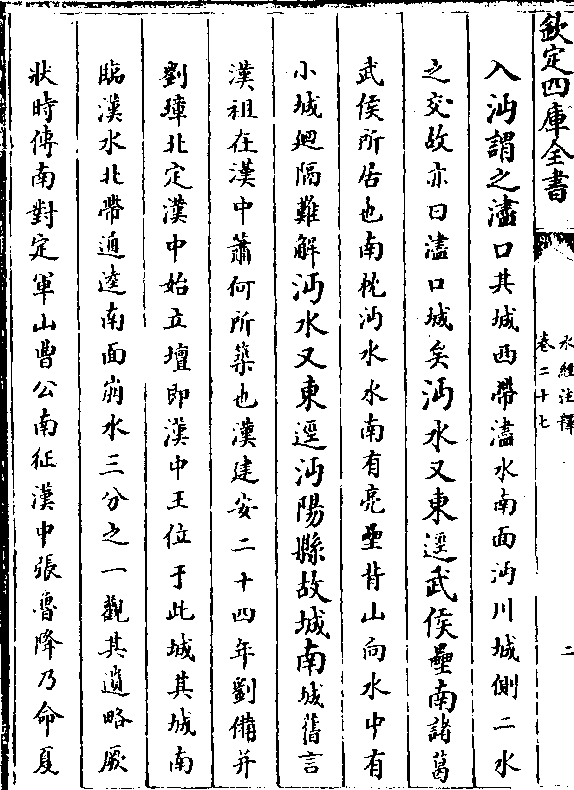 欽定四庫全書
水經注釋
卷二十七
二
入沔謂之濜口其城西帶濜水南面沔川城側二水
之交故亦曰濜口城矣沔水又東逕武侯壘南諸葛
武侯所居也南枕沔水水南有亮壘背山向水中有
小城廻隔難解沔水又東逕沔陽縣故城南城舊言
漢祖在漢中蕭何所築也漢建安二十四年劉備并
劉璋北定漢中始立壇即漢中王位于此城其城南
臨漢水北帶通逵南面崩水三分之一觀其遺略厥
狀時傳南對定軍山曹公南征漢中張魯降乃命夏